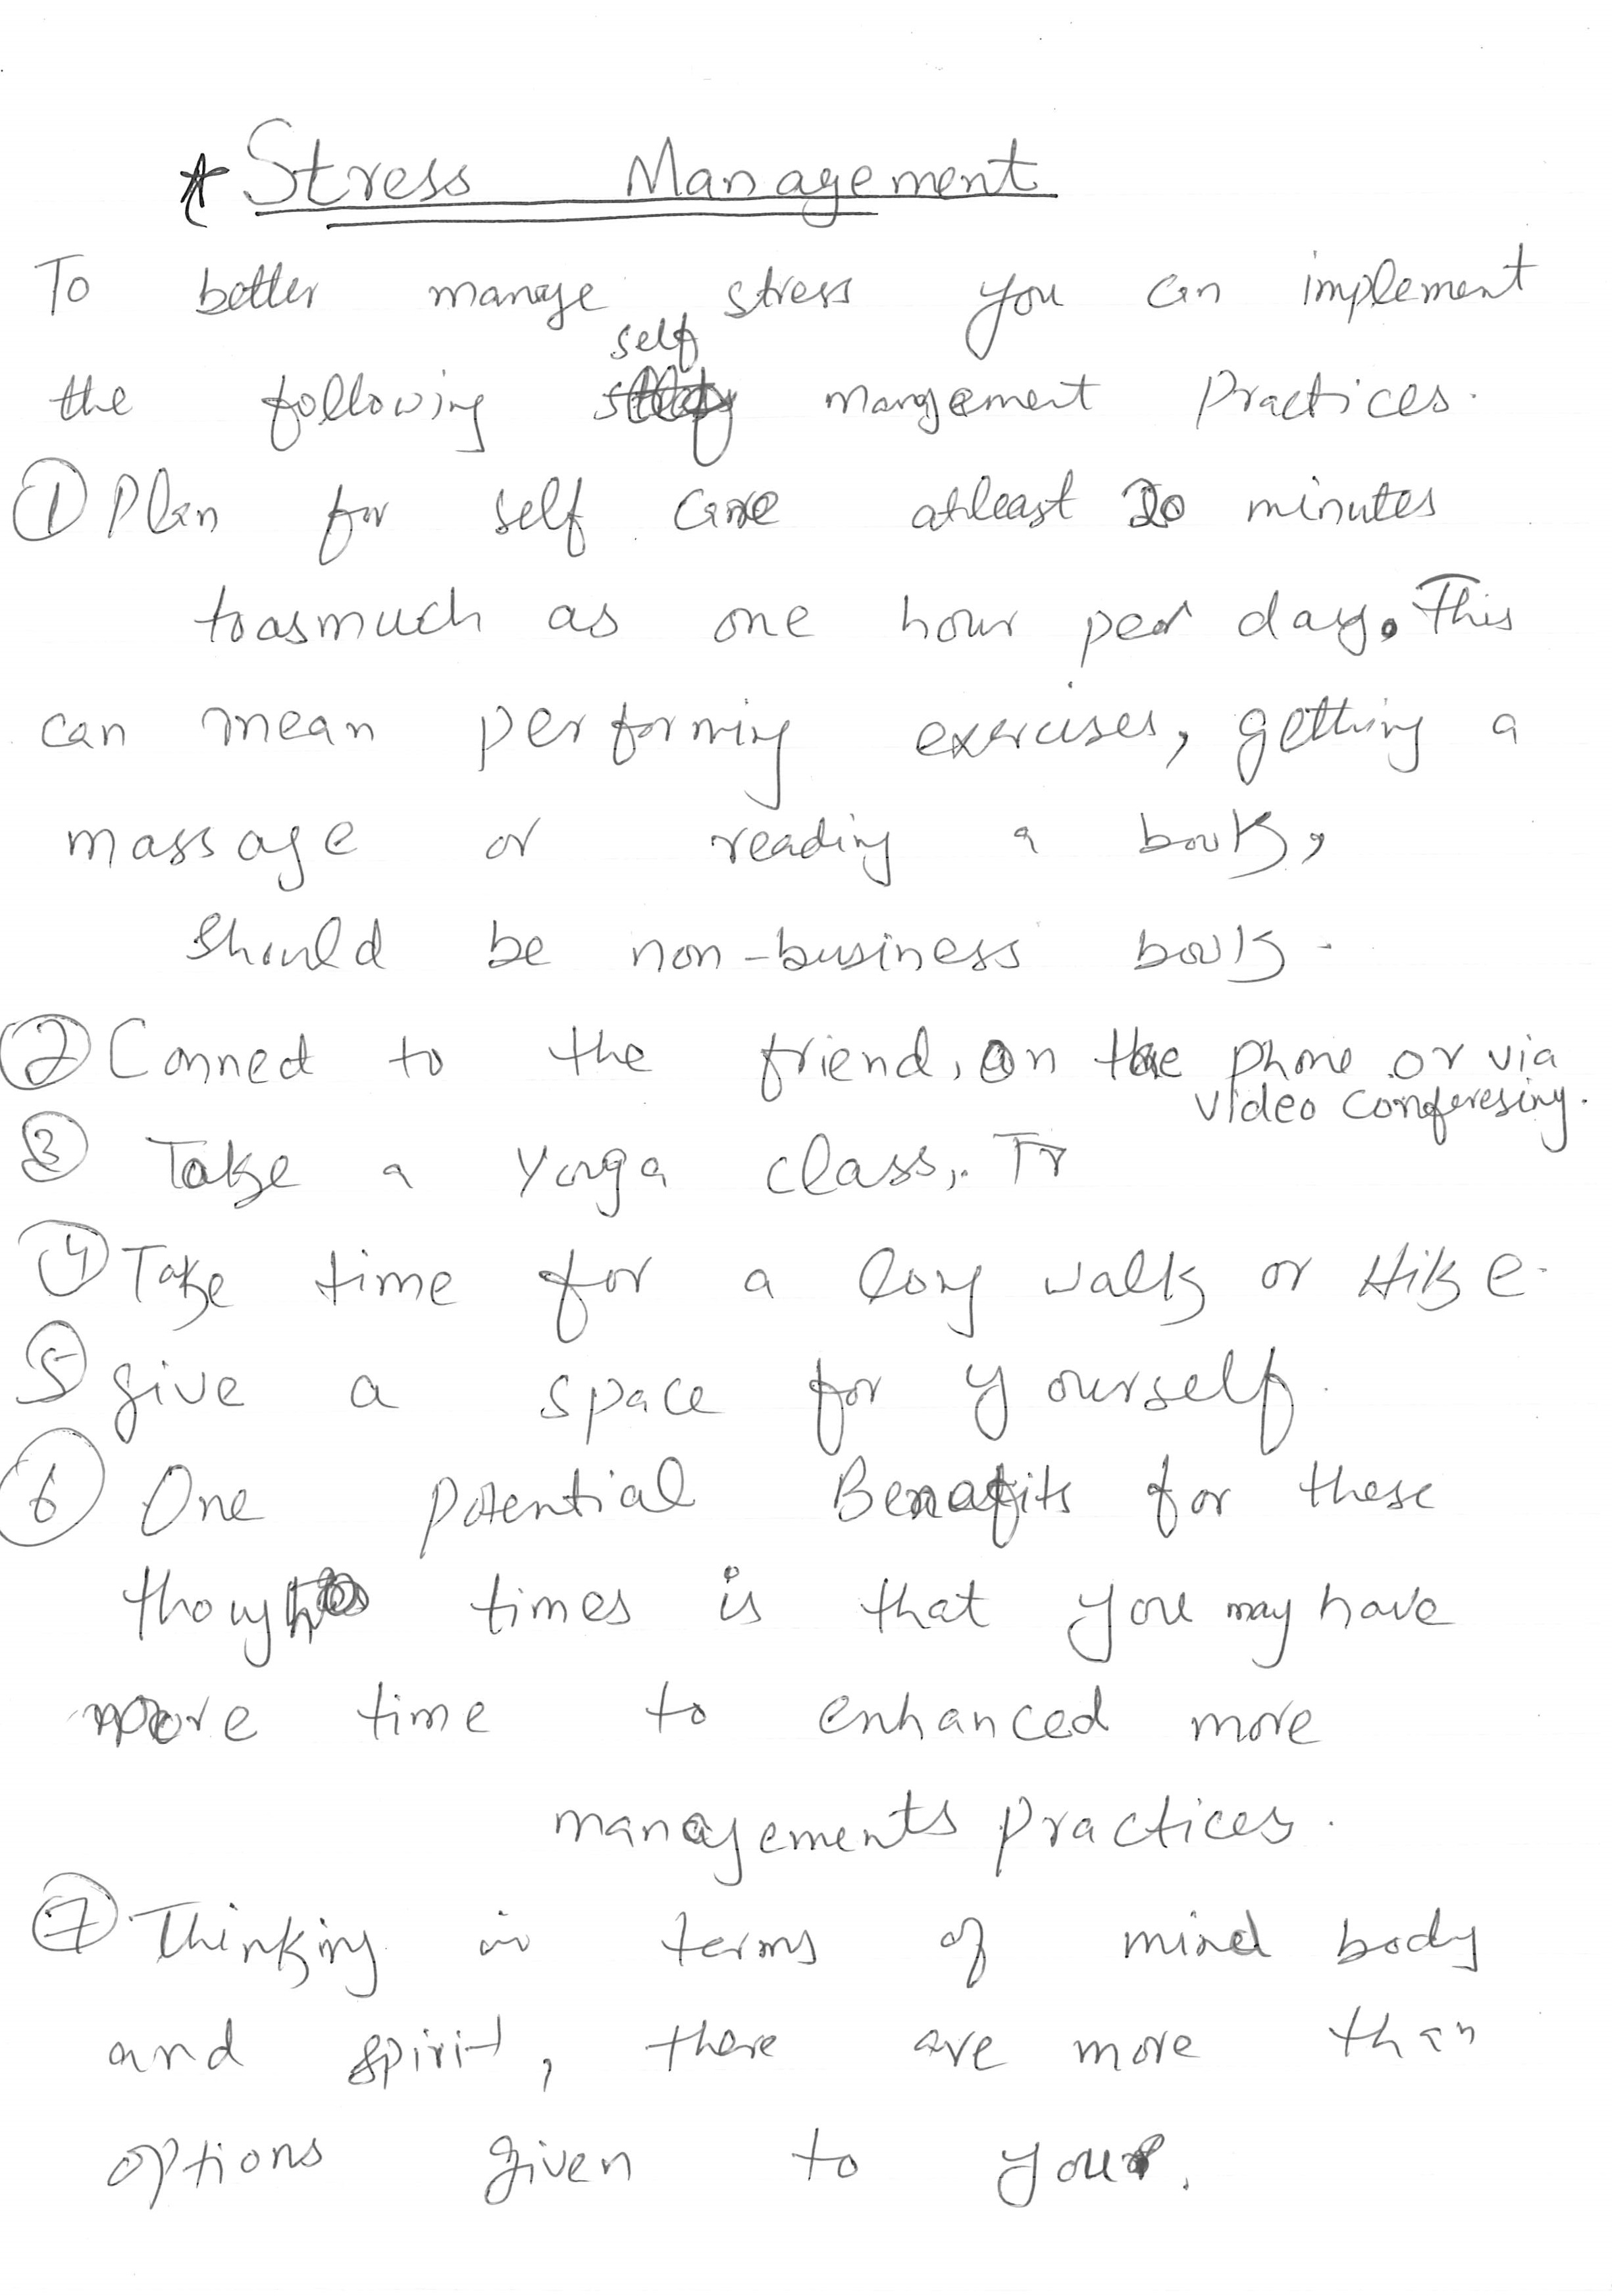 * Stress Management
To better manage stress you can implement
the following self management practices.
① Plan for self care atleast 20 minutes
toasmuch as one hour per day. This
can mean performing exercises, getting a
massage or reading a book,
Should be non-business book.
② Connect to the friend, on the phone or via
video conferesing.
③ Take a Yonga class,. Tr
④ Take time for a long walk or Hike.
⑤ give a space for yourself.
⑥ One potential Benafits for these
though times is that you may have
more time to enhanced more
managements practices.
⑦ Thinking in terms of mind body
and spirit, there are more than
options given to you.